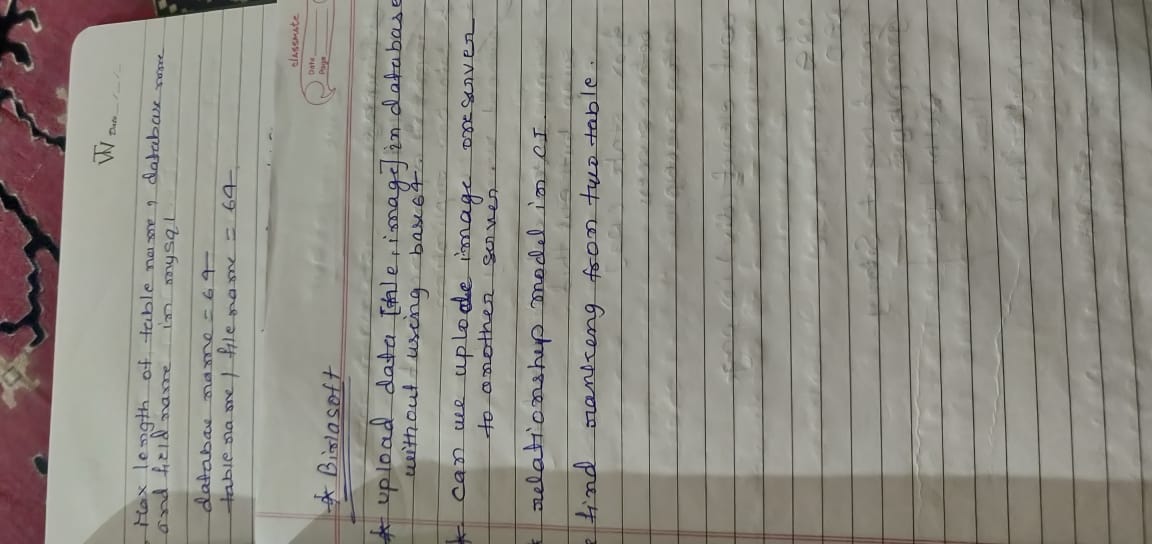 Max length of table name, database name
and field name in mysql
database name = 64
table name / file name = 64
Date
classmate
Date
Page
* Birlasoft
* upload data [file, image] in database
without using base64.
* can we uplode image one server
to another server.
* relationship model in CI.
* find rankeng from two table.